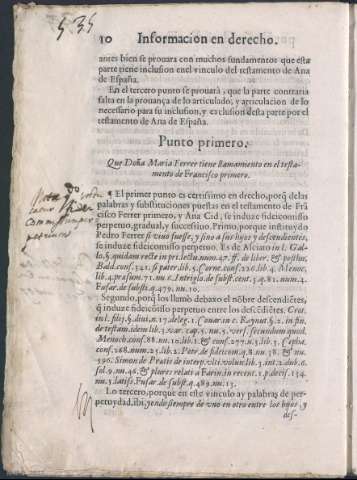 535
10 Informacion en derecho.
antes bien se prouara con muchos fundamentos que esta
parte tiene inclusion en el vinculo del testamento de Ana
de España.
En el tercero punto se prouarà, que la parte contraria
falta en la prouança de lo articulado, y articulacion de lo
necessario para su inclusion, y exclusion desta parte por el
testamento de Ana de España.
Punto primero.
Que Doña Maria Ferrer tiene llamamiento en el testa-
mento de Francisco primero.
¶ El primer punto es certissimo en drecho, porq̃ de las
palabras y substituciones puestas en el testamento de Frã
cisco Ferrer primero, y Ana Cid, se induze fideicomisso
perpetuo, gradual, y successiuo. Primo, porque instituydo
Pedro Ferrer si viuo fuesse, y sino a sus hijos y descendientes,
se induze fideicomisso perpetuo. Es de Alciato in l. Gal-
lo, §. quidam recte in pri. lectu. num. 47. ff. de liber. & posthu.
Bald. cons. 341. si pater lib. 5. Corne. cons. 226. lib. 4. Menoc.
lib. 4. præsum. 71. nu. 2. Intrigliol. de subst. cent. 3. q. 81. num. 4.
Fusar. de substit. q. 479. nu. 10.
Segundo, porq̃ los llamò debaxo el nõbre descendiẽtes,
q̃ induze fideicomisso perpetuo entre los descẽdiẽtes. Crot.
in l. filij, §. diui, n. 17. deleg. 1. Couar. in c. Raynut. §. 2. in fin.
de testam. idem lib. 3. var. cap. 5. nu. 5. vers. secundum quod.
Menoch. cons. 88. nu. 10. lib. 1. & cons. 277. n. 5. lib. 3. Cepha.
cons. 268. num. 23. lib. 2. Peter. de fideicom. q. 8. nu. 38. & nu.
390. Simon de Prætis de interp. vlt. volun. lib. 3. int. 2. dub. 6.
sol. 9. nu. 46. & plures relati a Farin. in recent. 1. p. decis. 134.
nu. 3. latiss. Fusar. de subst. q. 489. nu. 13.
Lo tercero, porque en este vinculo ay palabras de per-
petuydad, ibi, yendo siempre de vno en otro entre los hijos, y
des-